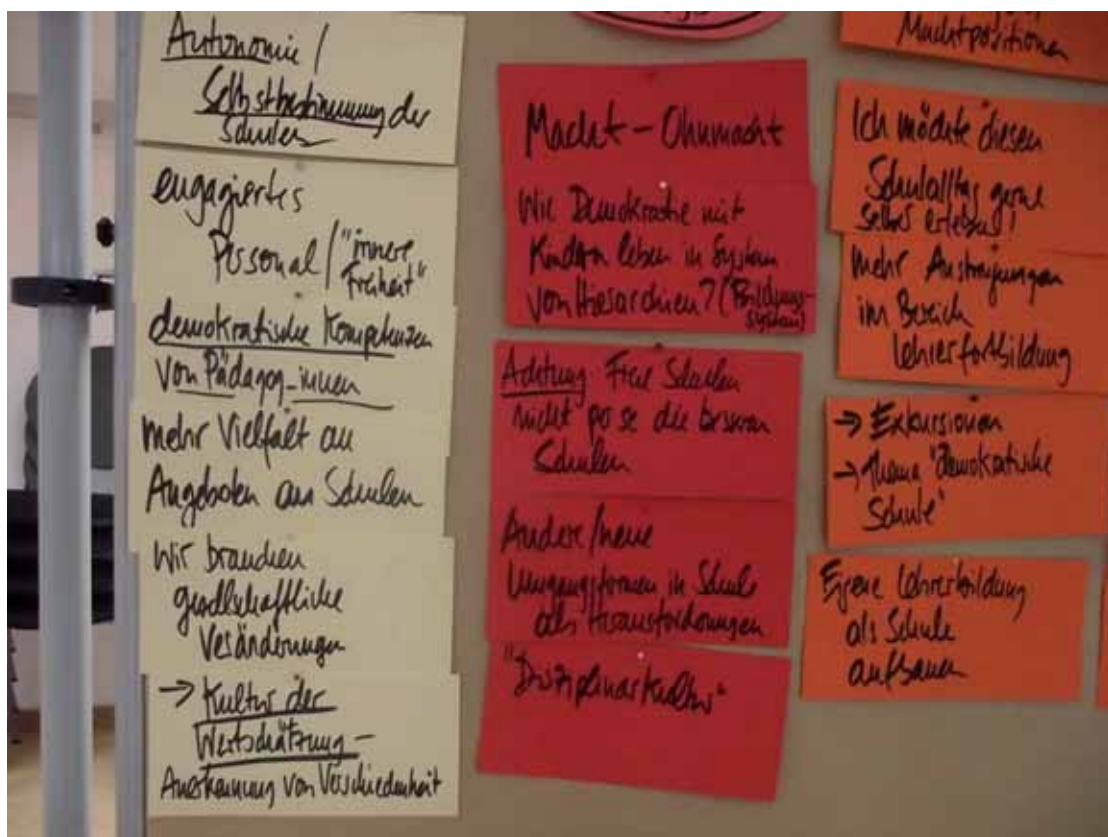 Autonomie /
Selbstbestimmung der
Schulen
engagiertes
Personal / "innere
Freiheit"
demokratische Kompetenzen
von Pädagog_innen
mehr Vielfalt an
Angeboten an Schulen
Wir brauchen
gesellschaftliche
Veränderungen
→ Kultur der
Wertschätzung –
Anerkennung von Verschiedenheit
Macht – Ohnmacht
Wie Demokratie mit
Kindern leben in System
von Hierarchien? (Bildungs-
system)
Achtung Freie Schulen
nicht per se die besseren
Schulen
Andere/neue
Umgangsformen in Schule
als Herausforderungen
"Disziplinarkultur"
Machtpositionen
Ich möchte diesen
Schulalltag gerne
selbst erleben!
mehr Anstrengungen
im Bereich
Lehrerfortbildung
→ Exkursionen
→ Thema "demokratische
Schule"
Eigene Lehrerbildung
als Schule
aufbauen